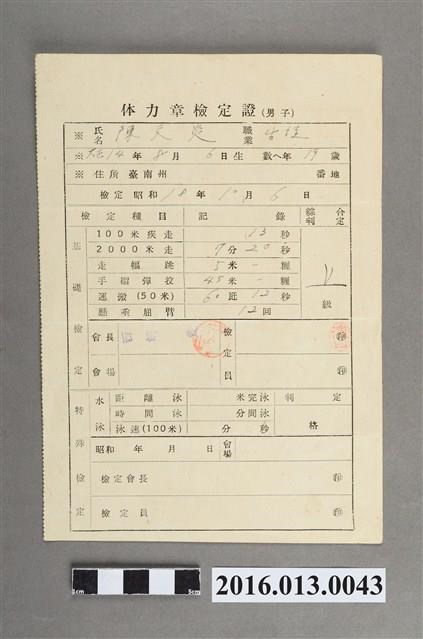 体力章檢定證(男子)
※ 氏名 陳 天 職業
※ 大正14年8月6日生 數ヘ年19歳
※ 住所 臺南州 番地
檢定 昭和18年10月6日
檢定種目 記錄 綜合判定
基礎檢定
100米疾走 13秒
2000米走 7分20秒
走幅跳 5米-糎
手榴彈投 45米-糎
運搬(50米) 60瓩12秒 級
懸垂屈臂 12回
會長 檢定員 ㊞
會場 ㊞
特殊檢定
水泳 距離泳 米完泳 判定
時間泳 分間泳
泳速(100米) 分 秒 格
昭和 年 月 日 會場
檢定會長 ㊞
檢定員 ㊞
5cm
2016.013.0043